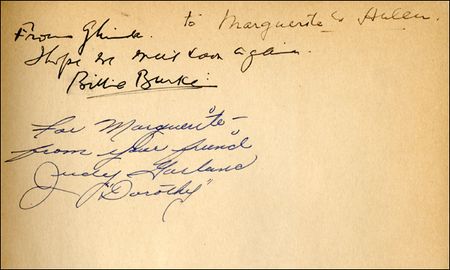 From Glinda. to Marguerite & Helen.
I hope we meet soon again.
Billie Burke.
For Marguerite -
from your friend
Judy Garland
"Dorothy"